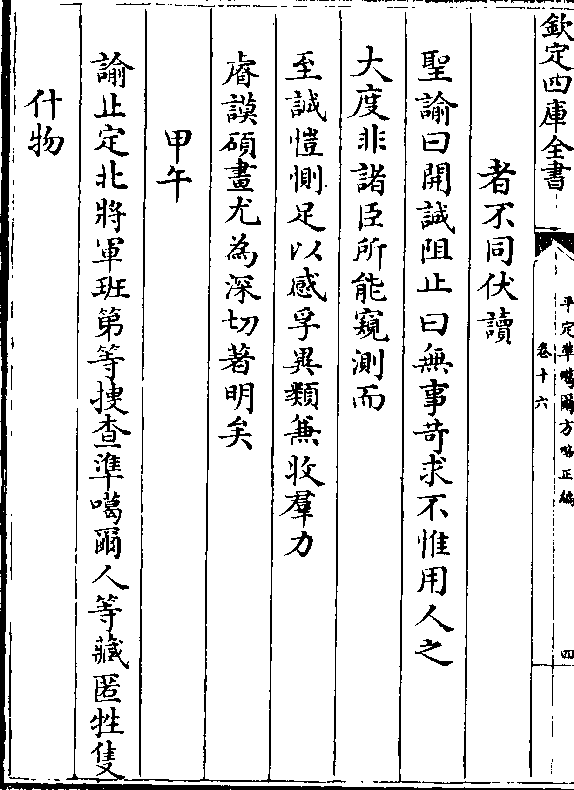 欽定四庫全書
平定準噶爾方略正編
卷十六
四
者不同伏讀
聖諭曰開誠阻止曰無事苛求不惟用人之
大度非諸臣所能窺測而
至誠愷惻足以感孚異類兼收羣力
睿謨碩畫尤為深切著明矣
甲午
諭止定北將軍班第等搜查準噶爾人等藏匿牲隻
什物